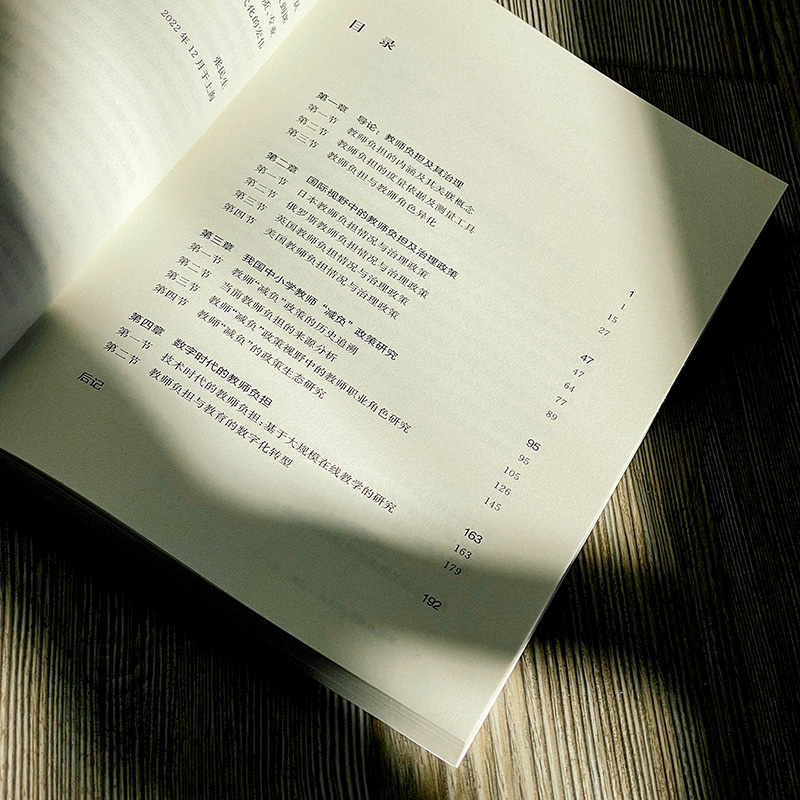 到课
质、专业
代化的宏伟
张民生
2022年12月于上海
目 录
第一章 导论：教师负担及其治理 1
第一节 教师负担的内涵及其关联概念 1
第二节 教师负担的度量依据及测量工具 15
第三节 教师负担与教师角色异化 27
第二章 国际视野中的教师负担及治理政策 47
第一节 日本教师负担情况与治理政策 47
第二节 俄罗斯教师负担情况与治理政策 64
第三节 英国教师负担情况与治理政策 77
第四节 美国教师负担情况与治理政策 89
第三章 我国中小学教师“减负”政策研究 95
第一节 教师“减负”政策的历史追溯 95
第二节 当前教师负担的来源分析 105
第三节 教师“减负”政策视野中的教师职业角色研究 126
第四节 教师“减负”的政策生态研究 145
第四章 数字时代的教师负担 163
第一节 技术时代的教师负担：基于大规模在线教学的研究 163
第二节 教师负担与教育的数字化转型 179
后记 192